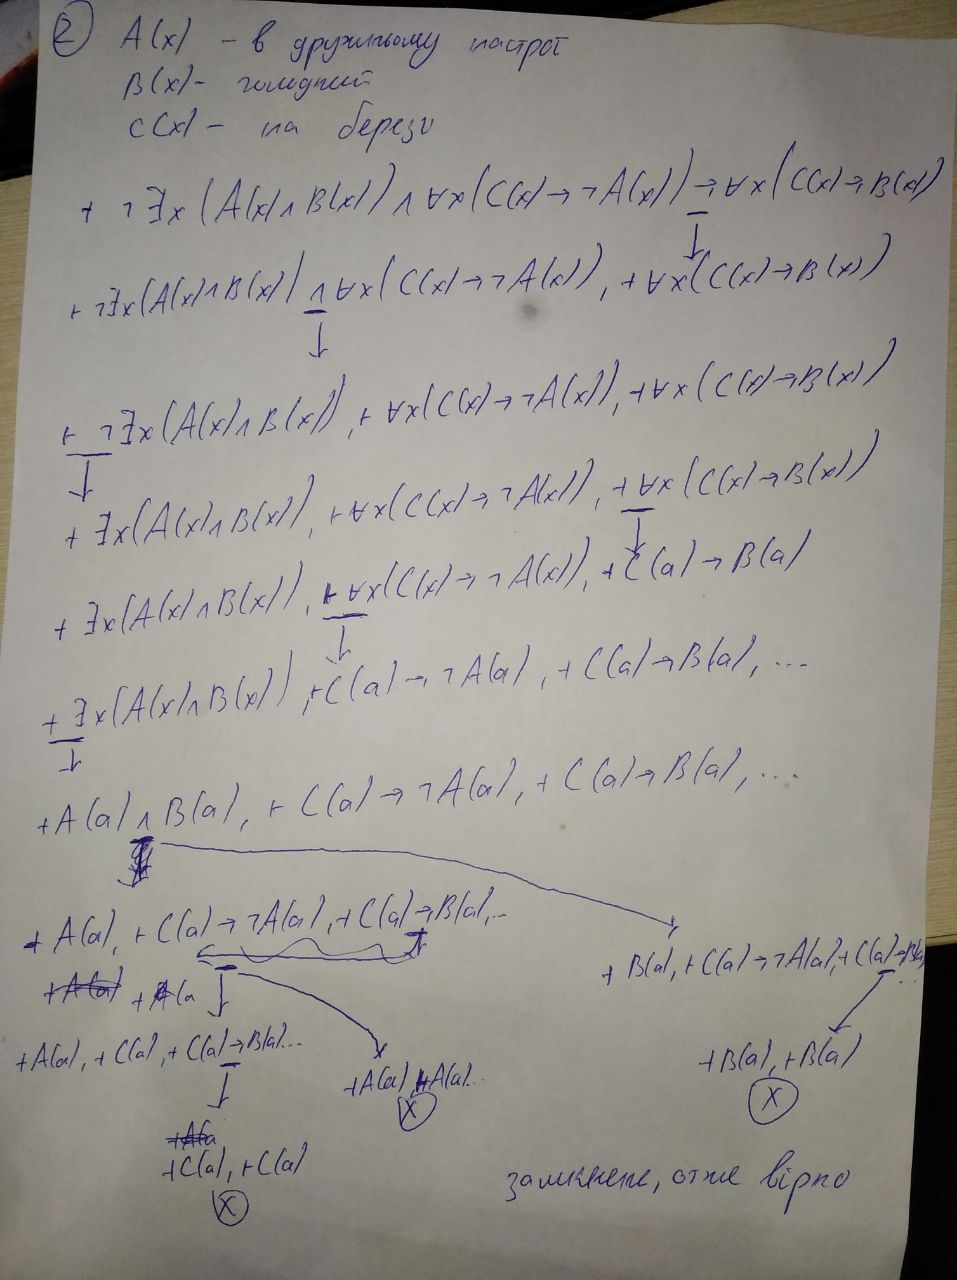 2 A(x) - в дружньому настрої
B(x) - голодний
C(x) - на березі
⊣ ¬∃x(A(x)∧B(x))∧∀x(C(x)→¬A(x))→∀x(C(x)→B(x))
⊢¬∃x(A(x)∧B(x))∧∀x(C(x)→¬A(x)), ⊣∀x(C(x)→B(x))
⊢¬∃x(A(x)∧B(x)), ⊢∀x(C(x)→¬A(x)), ⊣∀x(C(x)→B(x))
⊣∃x(A(x)∧B(x)), ⊢∀x(C(x)→¬A(x)), ⊣∀x(C(x)→B(x))
⊣∃x(A(x)∧B(x)), ⊢∀x(C(x)→¬A(x)), ⊣C(a)→B(a)
⊣∃x(A(x)∧B(x)), ⊢C(a)→¬A(a), ⊣C(a)→B(a), ...
⊣A(a)∧B(a), ⊢C(a)→¬A(a), ⊣C(a)→B(a), ...
⊣A(a), ⊢C(a)→¬A(a), ⊣C(a)→B(a), ...
⊣B(a), ⊢C(a)→¬A(a), ⊣C(a)→B(a, ...
⊣A(a), ⊣C(a), ⊣C(a)→B(a)...
⊣A(a), ⊢A(a)...
X
⊣B(a), ⊢B(a)
X
⊣C(a), ⊢C(a)
X
замкнене, отже вірно